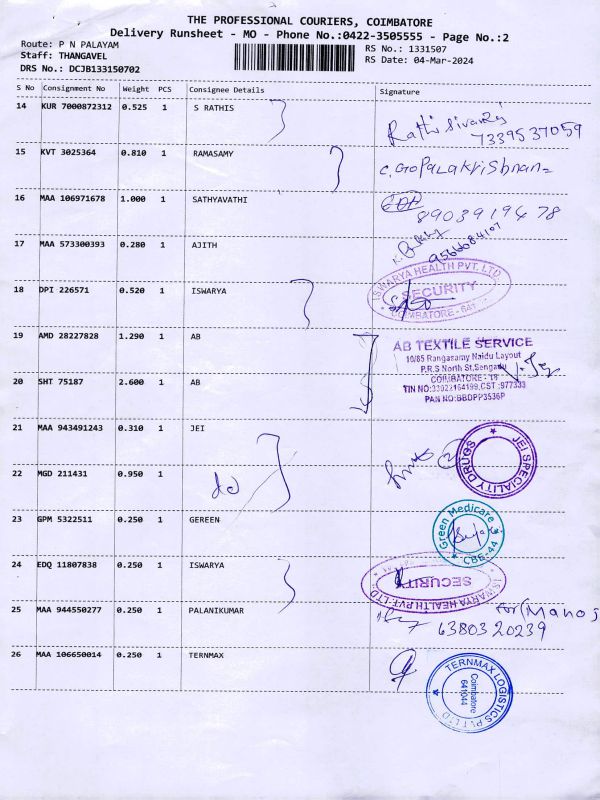 THE PROFESSIONAL COURIERS, COIMBATORE
Delivery Runsheet - MO - Phone No.:0422-3505555 - Page No.:2
Route: P N PALAYAM
Staff: THANGAVEL
DRS No.: DCJB133150702
RS No.: 1331507
RS Date: 04-Mar-2024
S No Consignment No Weight PCS Consignee Details Signature
14 KUR 7000872312 0.525 1 S RATHIS
Rathi Sivaraj
7339537059
15 KVT 3025364 0.810 1 RAMASAMY
C. GOPALAKrishnan
16 MAA 106971678 1.000 1 SATHYAVATHI
8903919478
17 MAA 573300393 0.280 1 AJITH
9566684107
18 DPI 226571 0.520 1 ISWARYA
ISWARYA HEALTH PVT. LTD
SECURITY
COIMBATORE - 641
19 AMD 28227828 1.290 1 AB
AB TEXTILE SERVICE
10/85 Rangasamy Naidu Layout
P.R.S North St,
COIMBATORE - 18
TIN NO:33922164199,CST :977333
PAN NO:BBDPP3536P
20 SHT 75187 2.600 1 AB
21 MAA 943491243 0.310 1 JEI
JEI SPECIALITY DRUGS
22 MGD 211431 0.950 1
do
23 GPM 5322511 0.250 1 GEREEN
Green Medicare
CBE-44
24 EDQ 11807838 0.250 1 ISWARYA
ISWARYA HEALTH PVT. LTD
SECURITY
25 MAA 944550277 0.250 1 PALANIKUMAR
for (Manoj
6380320239
26 MAA 106650014 0.250 1 TERNMAX
TERNMAX LOGISTICS PVT LTD
Coimbatore
641044